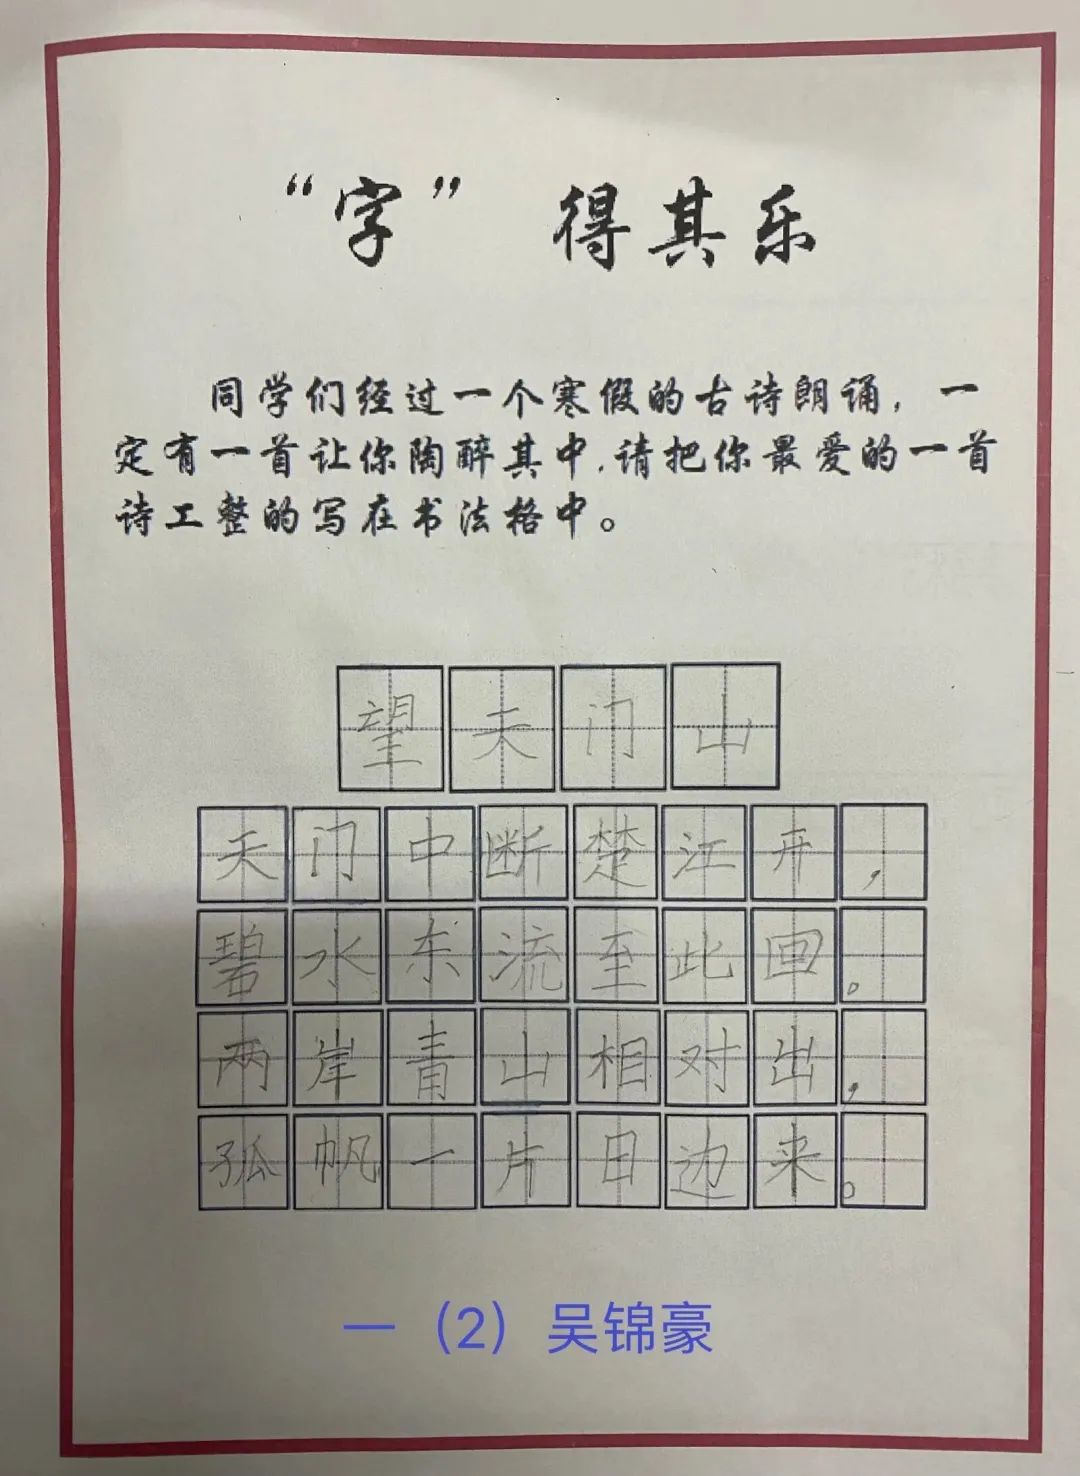 “字” 得其乐
同学们经过一个寒假的古诗朗诵，一
定有一首让你陶醉其中，请把你最爱的一首
诗工整的写在书法格中。
望天门山
天门中断楚江开，
碧水东流至此回。
两岸青山相对出，
孤帆一片日边来。
一（2）吴锦豪